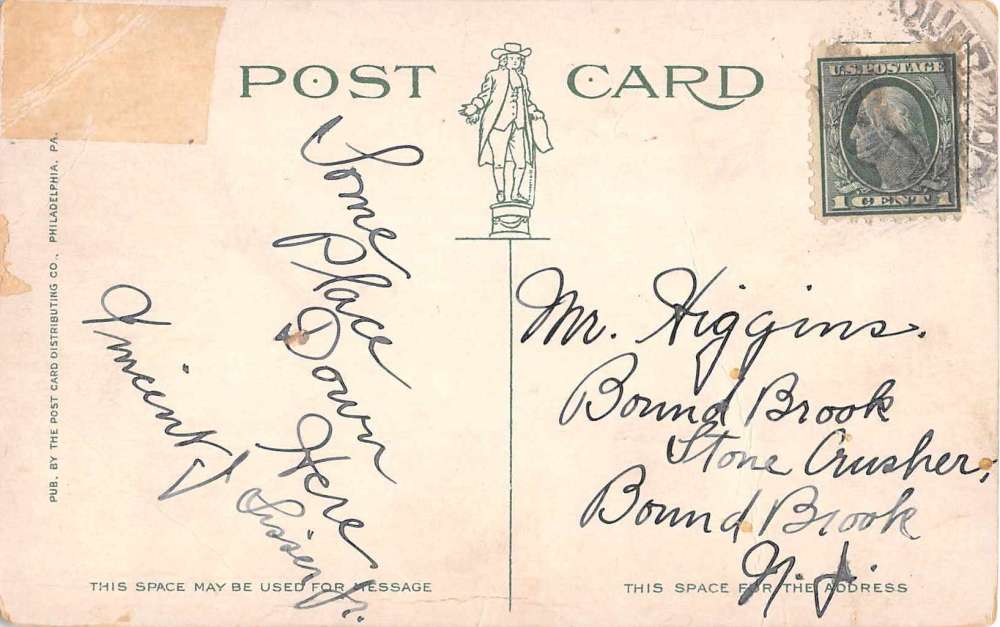 POST CARD
U.S. POSTAGE
1 CENT 1
PUB. BY THE POST CARD DISTRIBUTING CO., PHILADELPHIA, PA.
Some
Place
Down
Here
Vincint
Mr. Higgins.
Bound Brook
Stone Crusher,
Bound Brook
N. J.
THIS SPACE MAY BE USED FOR MESSAGE
THIS SPACE FOR THE ADDRESS